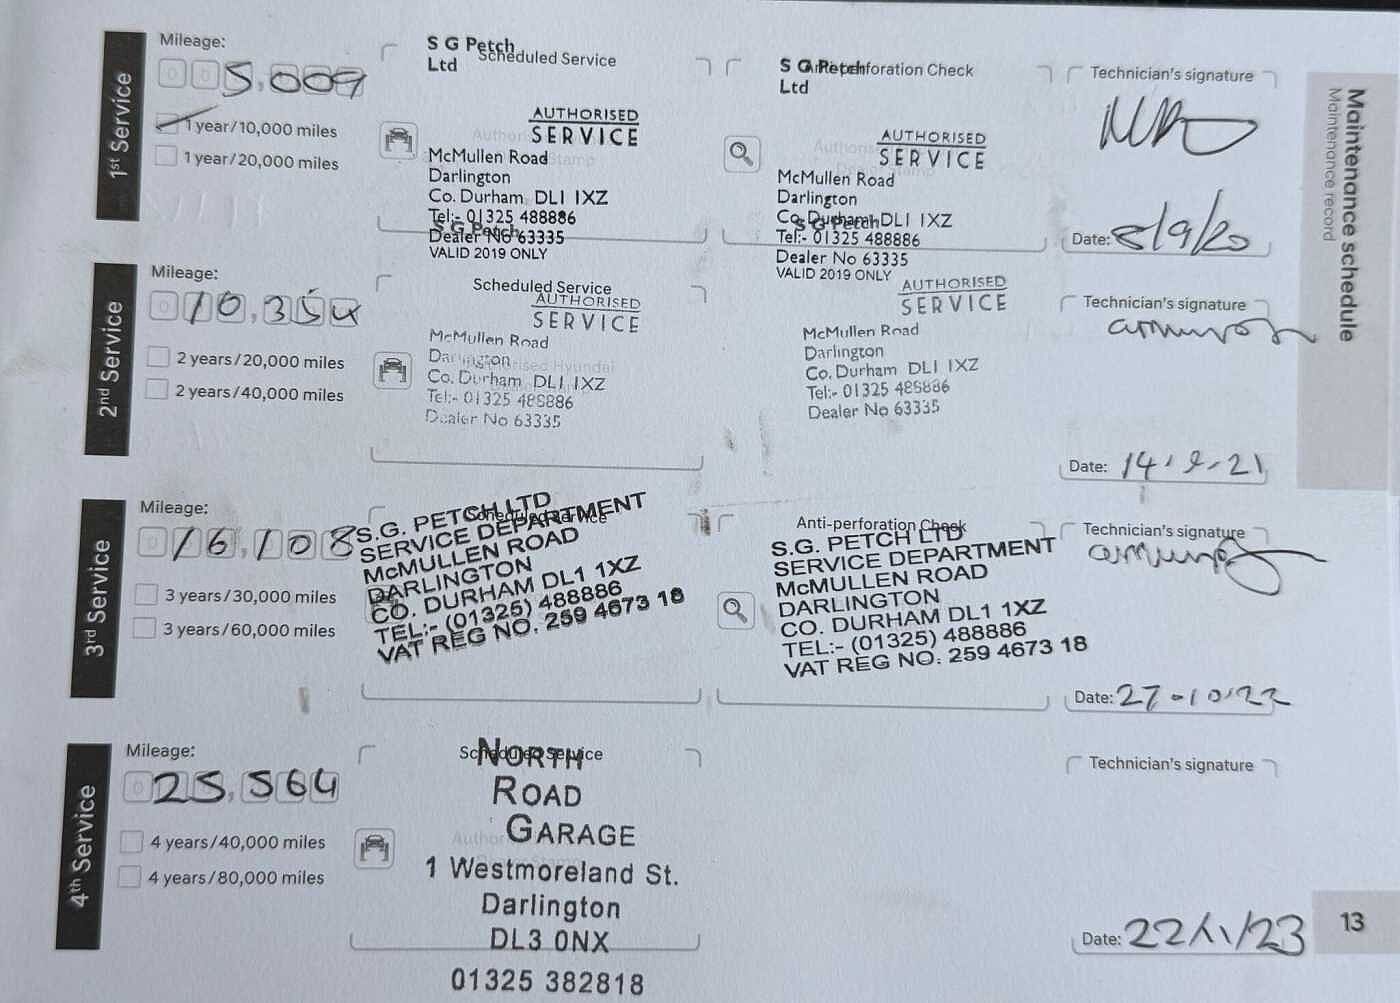 Maintenance schedule
Maintenance record
1st Service
Mileage:
005,009
1 year/10,000 miles
1 year/20,000 miles
S G Petch
Ltd
Scheduled Service
AUTHORISED
SERVICE
McMullen Road
Darlington
Co. Durham DL1 1XZ
Tel:- 01325 488886
Dealer No 63335
VALID 2019 ONLY
S G Petch
Ltd
Anti-perforation Check
AUTHORISED
SERVICE
McMullen Road
Darlington
Co. Durham DL1 1XZ
Tel:- 01325 488886
Dealer No 63335
VALID 2019 ONLY
Technician's signature
Date: 8/9/20
2nd Service
Mileage:
010,354
2 years/20,000 miles
2 years/40,000 miles
S G Petch
Scheduled Service
AUTHORISED
SERVICE
Authorised Hyundai
McMullen Road
Darlington
Co. Durham DL1 1XZ
Tel:- 01325 488886
Dealer No 63335
S G Petch
AUTHORISED
SERVICE
McMullen Road
Darlington
Co. Durham DL1 1XZ
Tel:- 01325 488886
Dealer No 63335
Technician's signature
Date: 14.9.21
3rd Service
Mileage:
016,108
3 years/30,000 miles
3 years/60,000 miles
Scheduled Service
S.G. PETCH LTD
SERVICE DEPARTMENT
McMULLEN ROAD
DARLINGTON
CO. DURHAM DL1 1XZ
TEL:- (01325) 488886
VAT REG NO. 259 4673 18
Anti-perforation Check
S.G. PETCH LTD
SERVICE DEPARTMENT
McMULLEN ROAD
DARLINGTON
CO. DURHAM DL1 1XZ
TEL:- (01325) 488886
VAT REG NO. 259 4673 18
Technician's signature
Date: 27-10-22
4th Service
Mileage:
025,564
4 years/40,000 miles
4 years/80,000 miles
Scheduled Service
NORTH
ROAD
GARAGE
1 Westmoreland St.
Darlington
DL3 0NX
01325 382818
Technician's signature
Date: 22/11/23
13